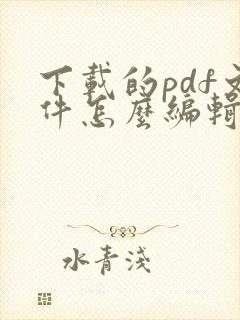 下載的pdf文
件怎麼編輯
水青淺